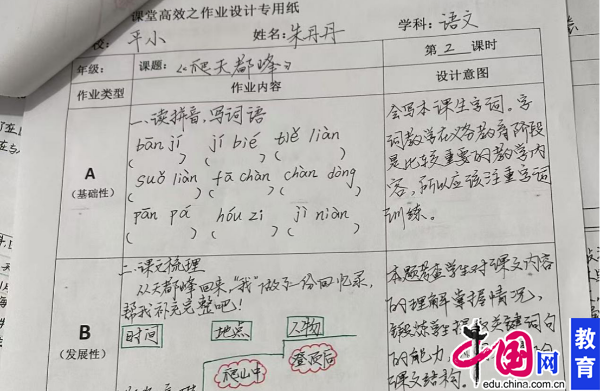 课堂高效之作业设计专用纸
校: 平小 姓名: 朱丹丹 学科: 语文
年级: 课题: 《爬天都峰》 第 2 课时
作业类型 作业内容 设计意图
A
(基础性)
一、读拼音,写词语
bān jí jì bié tiě liàn
( ) ( ) ( )
suǒ liàn fā chàn chàn dòng
( ) ( ) ( )
pān pá hóu zi jì niàn
( ) ( ) ( )
会写本课生字词。字
词教学在义务教育阶段
是比较重要的教学内
容,所以应该注重字词
训练。
B
(发展性)
二、课文梳理
从天都峰回来,"我"做了一份回忆录,
帮我补充完整吧!
时间 地点 人物
爬山中 登顶后
本题考查学生对课文内容
的理解掌握情况,
锻炼学生提取关键词句
的能力,
课文结构。
中国网
edu.china.com.cn
教育